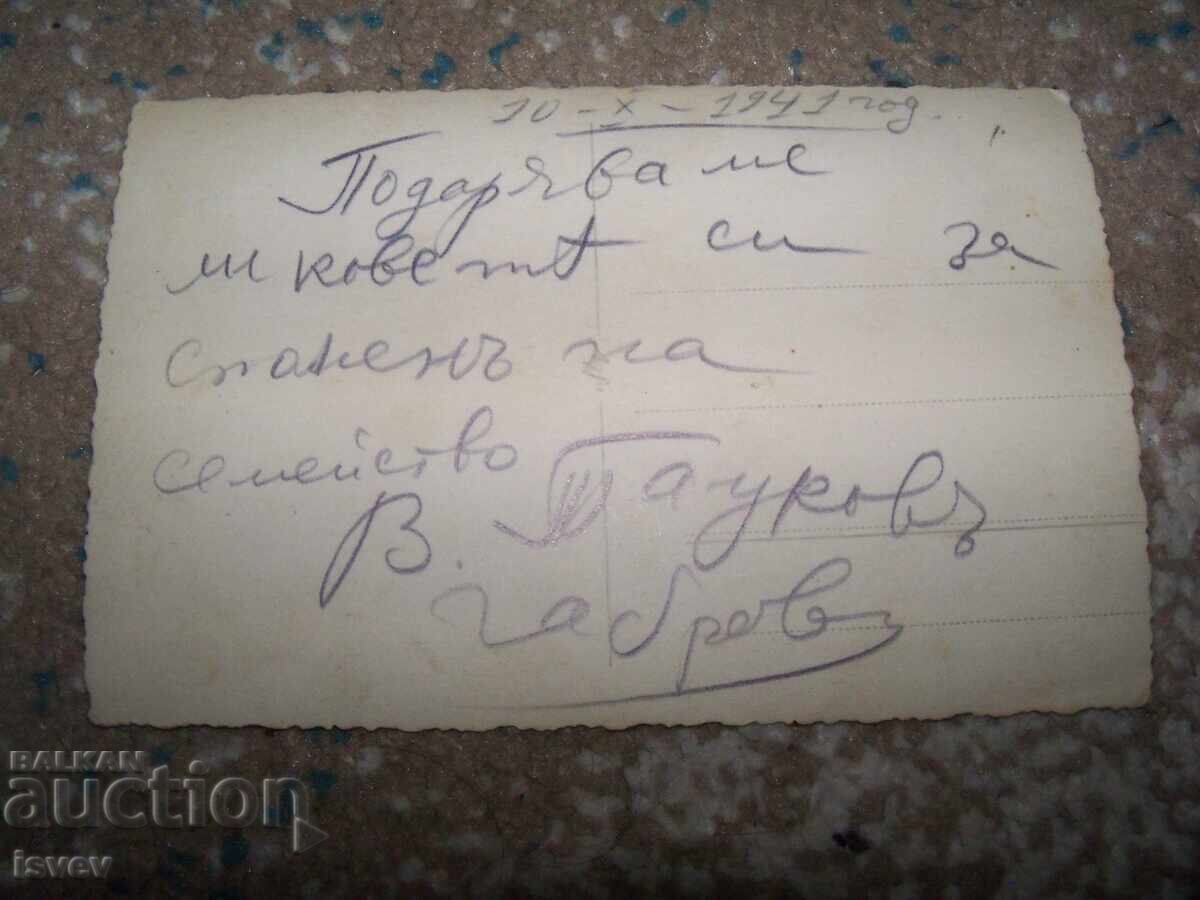 10 - X - 1941 год.
Подаряваме
ликовете си за
спомен на
семейство
В. Пауковъ
Габрово
BALKAN
auction
isvev